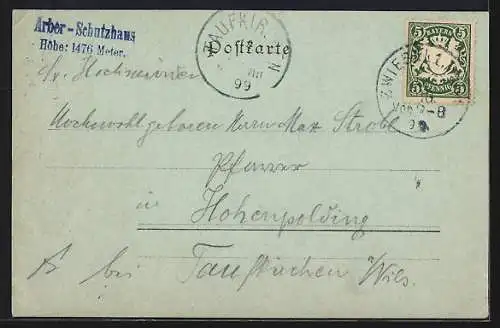 Arber-Schutzhaus
Höhe: 1476 Meter.
Postkarte
TAUFKIR N
99
BAYERN
5 5
PFENNIG
ZWIES
Vor 7-8
99
Sr. Hochwürden
Hochwohlgeboren Herrn Max Strobl
Pfarrer
in Hohenpolding
bei Taufkirchen a/Vils.